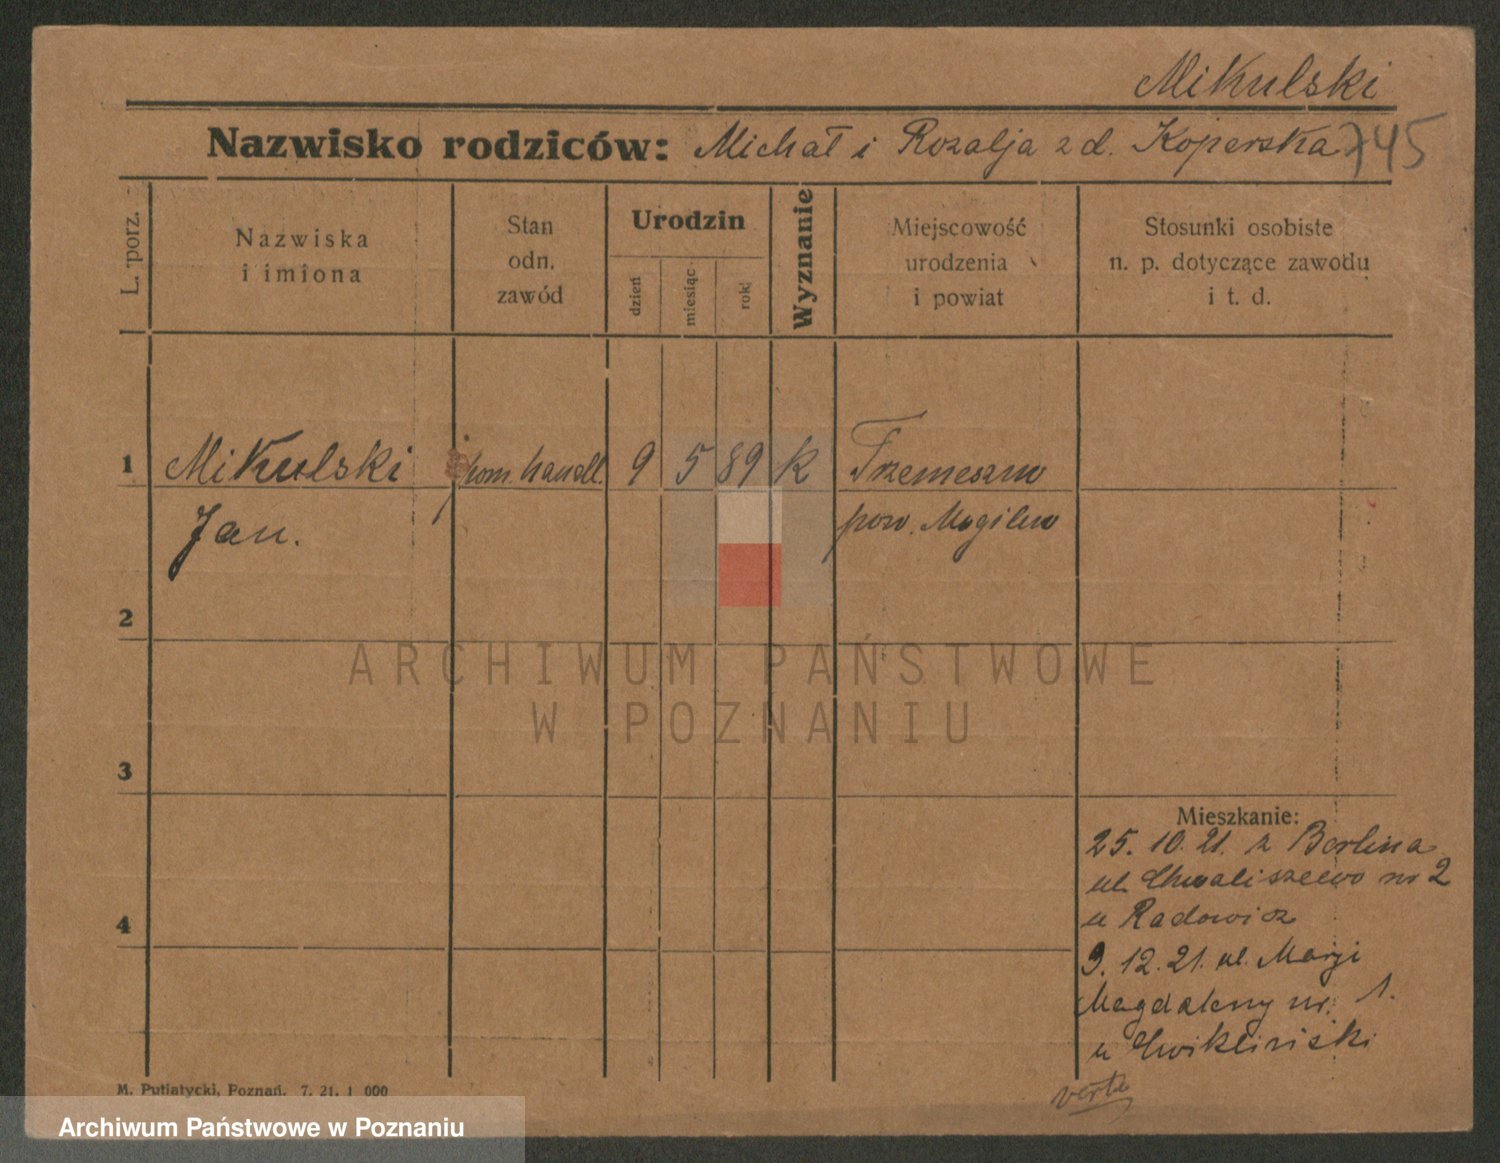 Mikulski
Nazwisko rodziców: Michał i Rozalja z d. Koperska 745
L. porz.
Nazwiska
i imiona
Stan
odn.
zawód
Urodzin
dzień
miesiąc
rok
Wyznanie
Miejscowość
urodzenia
i powiat
Stosunki osobiste
n. p. dotyczące zawodu
i t. d.
1 Mikulski pom. handl. 9 5 89 K Trzemeszno
Jan. pow. Mogilno
2
ARCHIWUM PAŃSTWOWE
W POZNANIU
3
Mieszkanie:
25. 10. 21. z Berlina
ul. Chwaliszewo nr 2
u Radowicz
4
9. 12. 21. ul. Marji
Magdaleny nr. 1.
u Ćwikliński
verte
M. Putiatycki, Poznań. 7. 21. 1 000
Archiwum Państwowe w Poznaniu